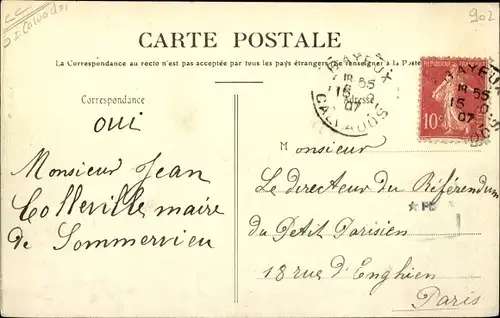 CARTE POSTALE
La Correspondance au recto n'est pas acceptée par tous les pays étrangers. Se renseigner à la Poste
Correspondance
Adresse
oui
Monsieur Jean
Colleville maire
de Sommervieu
Monsieur
Le directeur du Référendum
du Petit Parisien
18 rue d'Enghien
Paris
BAYEUX
CALVADOS
15
07
10c
902
Calvados